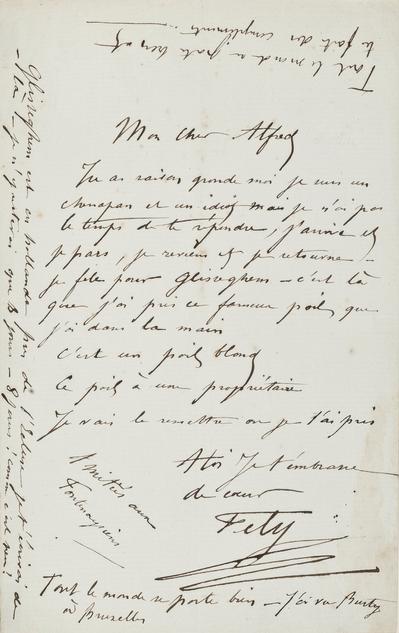 Mon cher Alfred
Tu as raison gronde moi je suis un
chenapan et un idiot mais je n'ai pas
le temps de te répondre, j'arrive et
je pars, je reviens et je retourne —
je file pour Gliseghem — c'est là
que j'ai pris ce fameux poil que
j'ai dans la main
C'est un poil blond
Ce poil a une propriétaire
Je vais le remettre ou je l'ai pris
A toi Je t'embrasse
de cœur
Fély
Amitiés aux
Tout le monde se porte bien — J'ai vu Burty
à Bruxelles
Gliseghem est en hollande près de l'Ecluse je t'écrirai de
là — je n'y resterai que 8 jours — 8 jours! comme c'est
Tout le monde se porte bien et
te fait des compliments